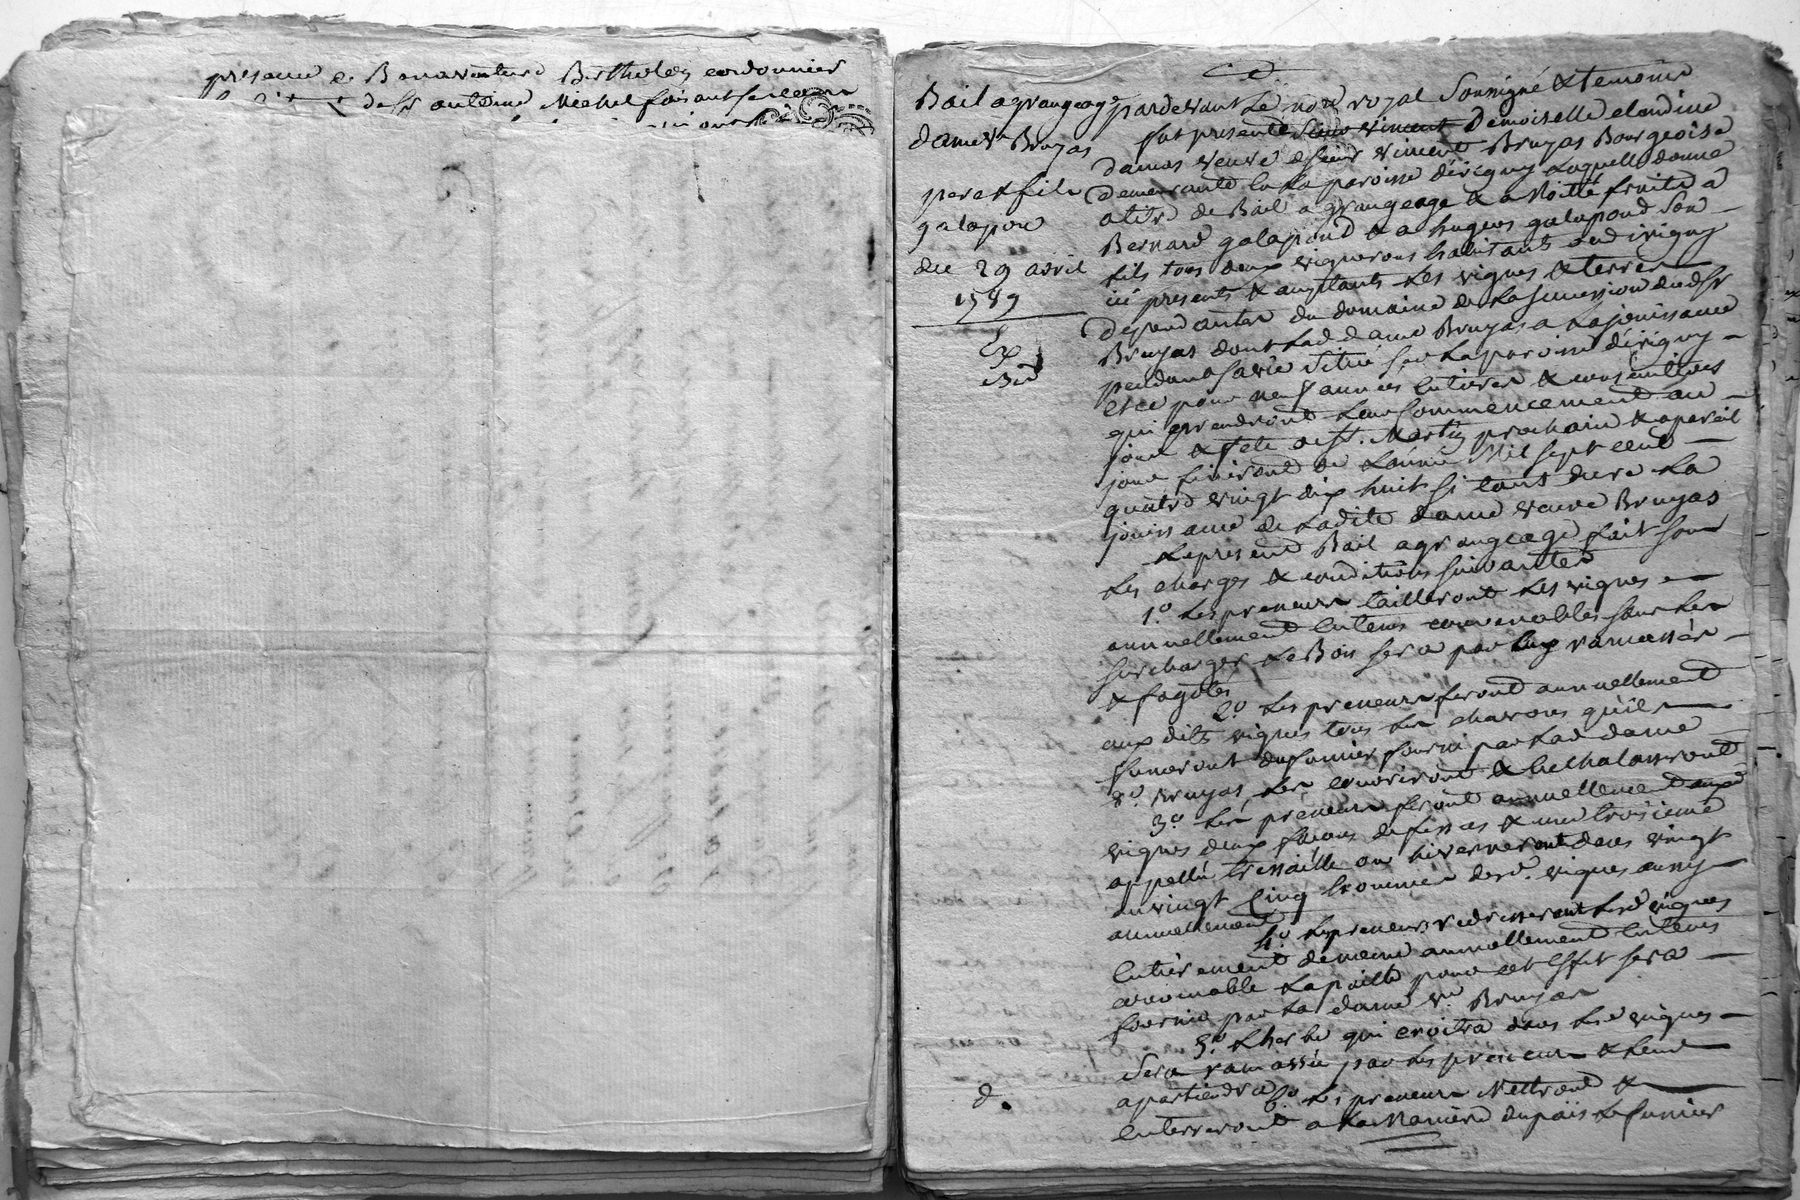 présence de Bonaventure Bertholey cordonnier
de Sr antoine Michel faisant
Bail a grangeage
dame ve Bruyas
pere & fils
galapon
du 29 avril
1789
Ex
Bié
pardevant Le nore royal Soussigné & temoins
fut presente Demoiselle claudine
damas veuve de sieur vincent Bruyas Bourgeoise
demeurante en La paroisse d'irigny Laquelle donne
a titre de Bail a grangeage & a Moitié fruits a
Bernard galapond & a hugues galapond Son
fils tous deux vignerons habitants aud irigny
ici presents & acceptants Les vignes & terres
dependantes du domaine de La succession dud Sr
Bruyas dont Lad dame Bruyas a La jouissance
pendant sa vie Situé sur La paroisse d'irigny
et ce pour neuf années Entieres & consecutives
qui prendront Leur commencement au
jour & fete de St. Martin prochain & a pareil
jour finiront de L'année Mil sept cent
quatre vingt dix huit si tant dure La
jouissance de Ladite dame veuve Bruyas
Le present Bail a grangeage fait sous
Les charges & conditions suivantes
1.o Les preneurs tailleront Les vignes
annuellement En tems convenables sans Les
surcharger Le Bois sera par Eux ramassés
& fagotés
2.o Les preneurs feront annuellement
aux dits vignes tous Les chavons qu'ils
fumeront du fumier fourni par Lad dame
ve. Bruyas, Les couvriront & Echalasseront
3.o Les preneurs feront annuellement auxd
vignes deux façons de fossés & une troisieme
appellée tressaille ou hiverneront dans vingt
ou vingt Cinq hommes desd. vignes aussy
annuellement
4.o Les preneurs redresseront Lesd vignes
Entierement de meme annuellement En tems
convenable La paille pour cet Effet sera
fournie par La dame ve Bruyas
5.o L'herbe qui croitra dans Lesd vignes
Sera ramassée par Les preneurs & Leur
apartiendra
6.o Les preneurs Mettront &
Enterreront a La Maniere du païs Le fumier
d.